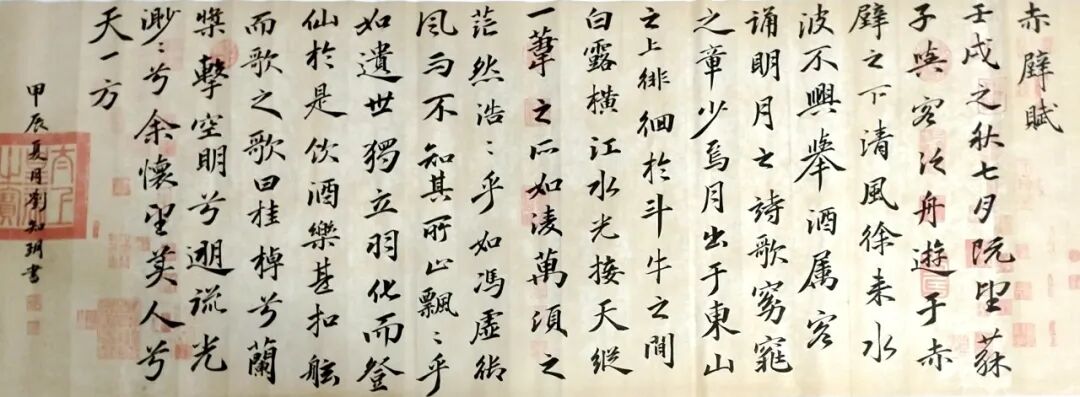 赤壁賦
壬戌之秋七月既望蘇
子與客泛舟遊于赤
壁之下清風徐来水
波不興舉酒属客
誦明月之詩歌窈窕
之章少焉月出于東山
之上徘徊於斗牛之間
白露橫江水光接天縱
一葦之所如凌萬頃之
茫然浩〻乎如馮虛御
風而不知其所止飄〻乎
如遺世獨立羽化而登
仙於是飲酒樂甚扣舷
而歌之歌曰桂棹兮蘭
槳擊空明兮遡流光
渺〻兮余懷望美人兮
天一方
甲辰夏月劉知玥書